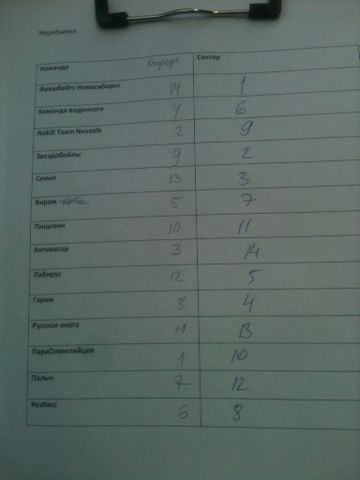 Жеребьевка
Команда Очередь Сектор
Фрешбейтс-Новосибирск 14 1
Команда водяного 4 6
Nokill Team Novosib 2 9
Звездобойлы 9 2
Семья 13 3
Вираж - 5 7
Пищевик 10 11
Активатор 3 14
Лабирус 12 5
Гараж 8 4
Русская охота 11 13
ПараОлимпийцев 1 10
Палыч 7 12
Кузбасс 6 8